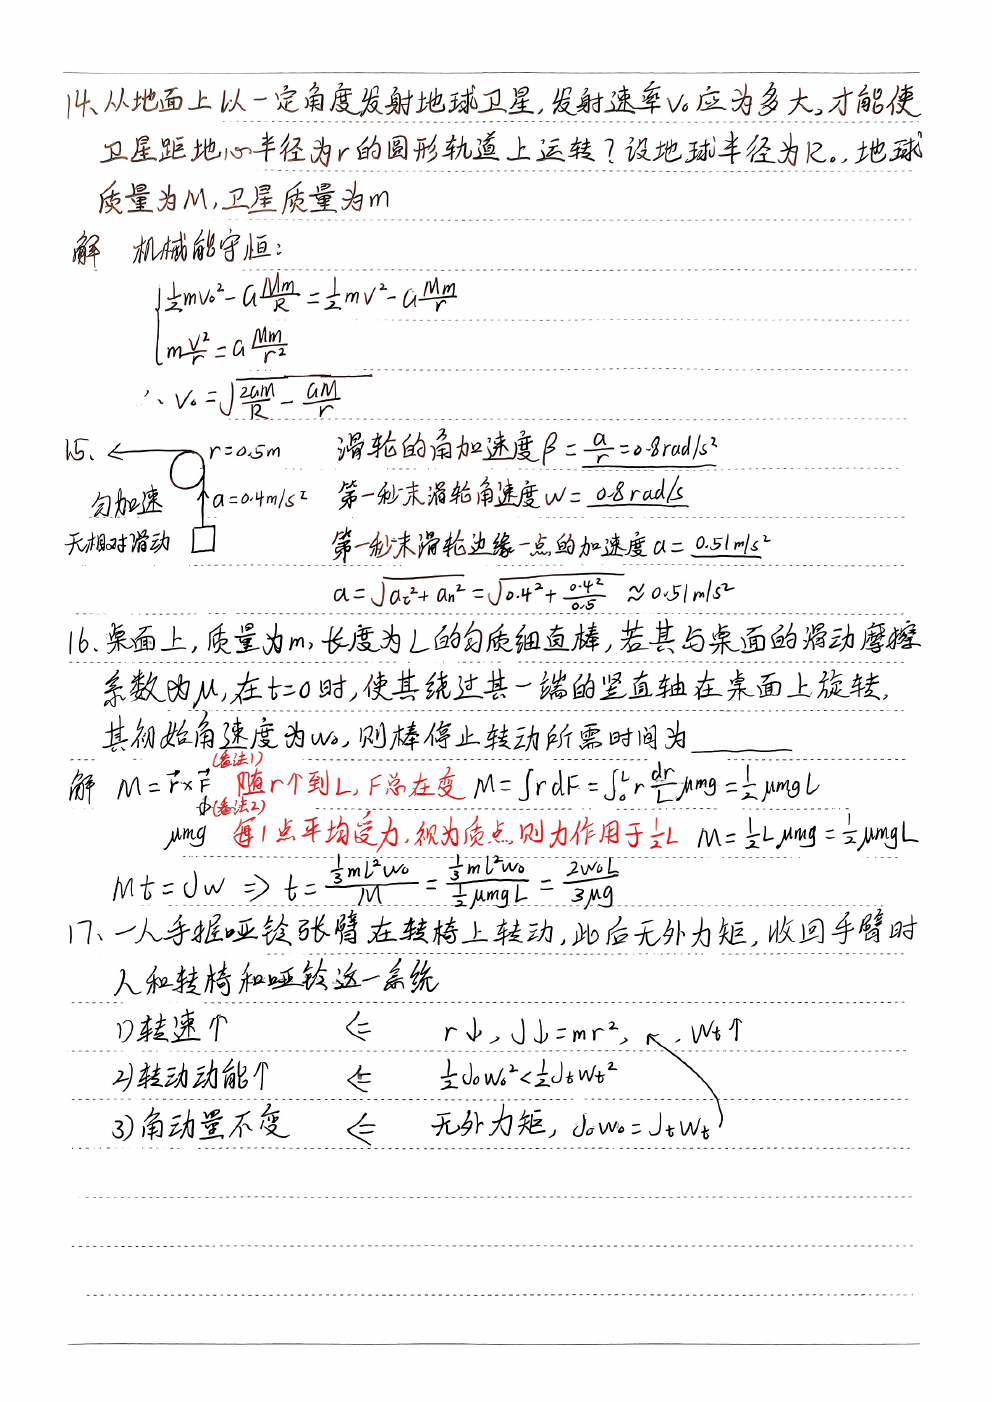 14、从地面上以一定角度发射地球卫星,发射速率v₀应为多大,才能使
卫星距地心半径为r的圆形轨道上运转?设地球半径为R。,地球
质量为M,卫星质量为m
解 机械能守恒:
½mv₀² - G Mm/R = ½mv² - G Mm/r
m v²/r = G Mm/r²
∴ v₀ = √(2GM/R - GM/r)
15、 r=0.5m 滑轮的角加速度β = a/r = 0.8rad/s²
匀加速 a=0.4m/s² 第一秒末滑轮角速度w = 0.8rad/s
无相对滑动 第一秒末滑轮边缘一点的加速度a = 0.51m/s²
a = √(aτ²+an²) = √(0.4²+0.4²/0.5) ≈ 0.51m/s²
16、桌面上,质量为m,长度为L的匀质细直棒,若其与桌面的滑动摩擦
系数为μ,在t=0时,使其绕过其一端的竖直轴在桌面上旋转,
其初始角速度为w₀,则棒停止转动所需时间为______
(看法1)
解 M = r⃗×F⃗ 随r个到L,F总在变 M = ∫rdF = ∫₀ᴸ r dr/L μmg = ½μmgL
(看法2)
μmg 每1点平均受力,视为质点,则力作用于½L M = ½L μmg = ½μmgL
Mt = Jw ⇒ t = ⅓mL²w₀/M = ⅓mL²w₀/½μmgL = 2w₀L/3μg
17、一人手握哑铃张臂在转椅上转动,此后无外力矩,收回手臂时
人和转椅和哑铃这一系统
1)转速↑ ⇐ r↓, J↓=mr², , wt↑
2)转动动能↑ ⇐ ½J₀w₀²<½Jtwt²
3)角动量不变 ⇐ 无外力矩, J₀w₀=Jtwt